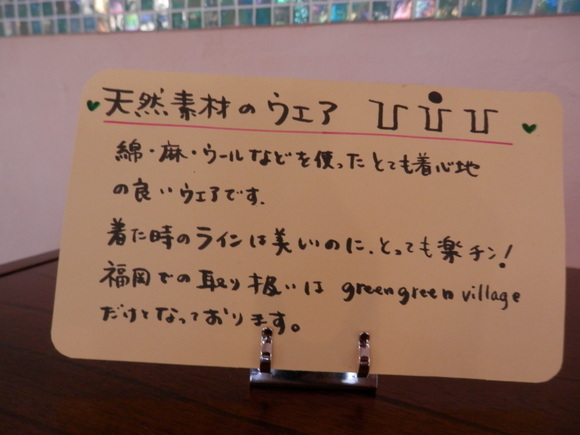 天然素材のウエア
綿・麻・ウールなどを使ったとても着心地
の良いウェアです.
着た時のラインは美いのに、とっても楽チン!
福岡での取り扱いは greengreen village
だけとなっております。